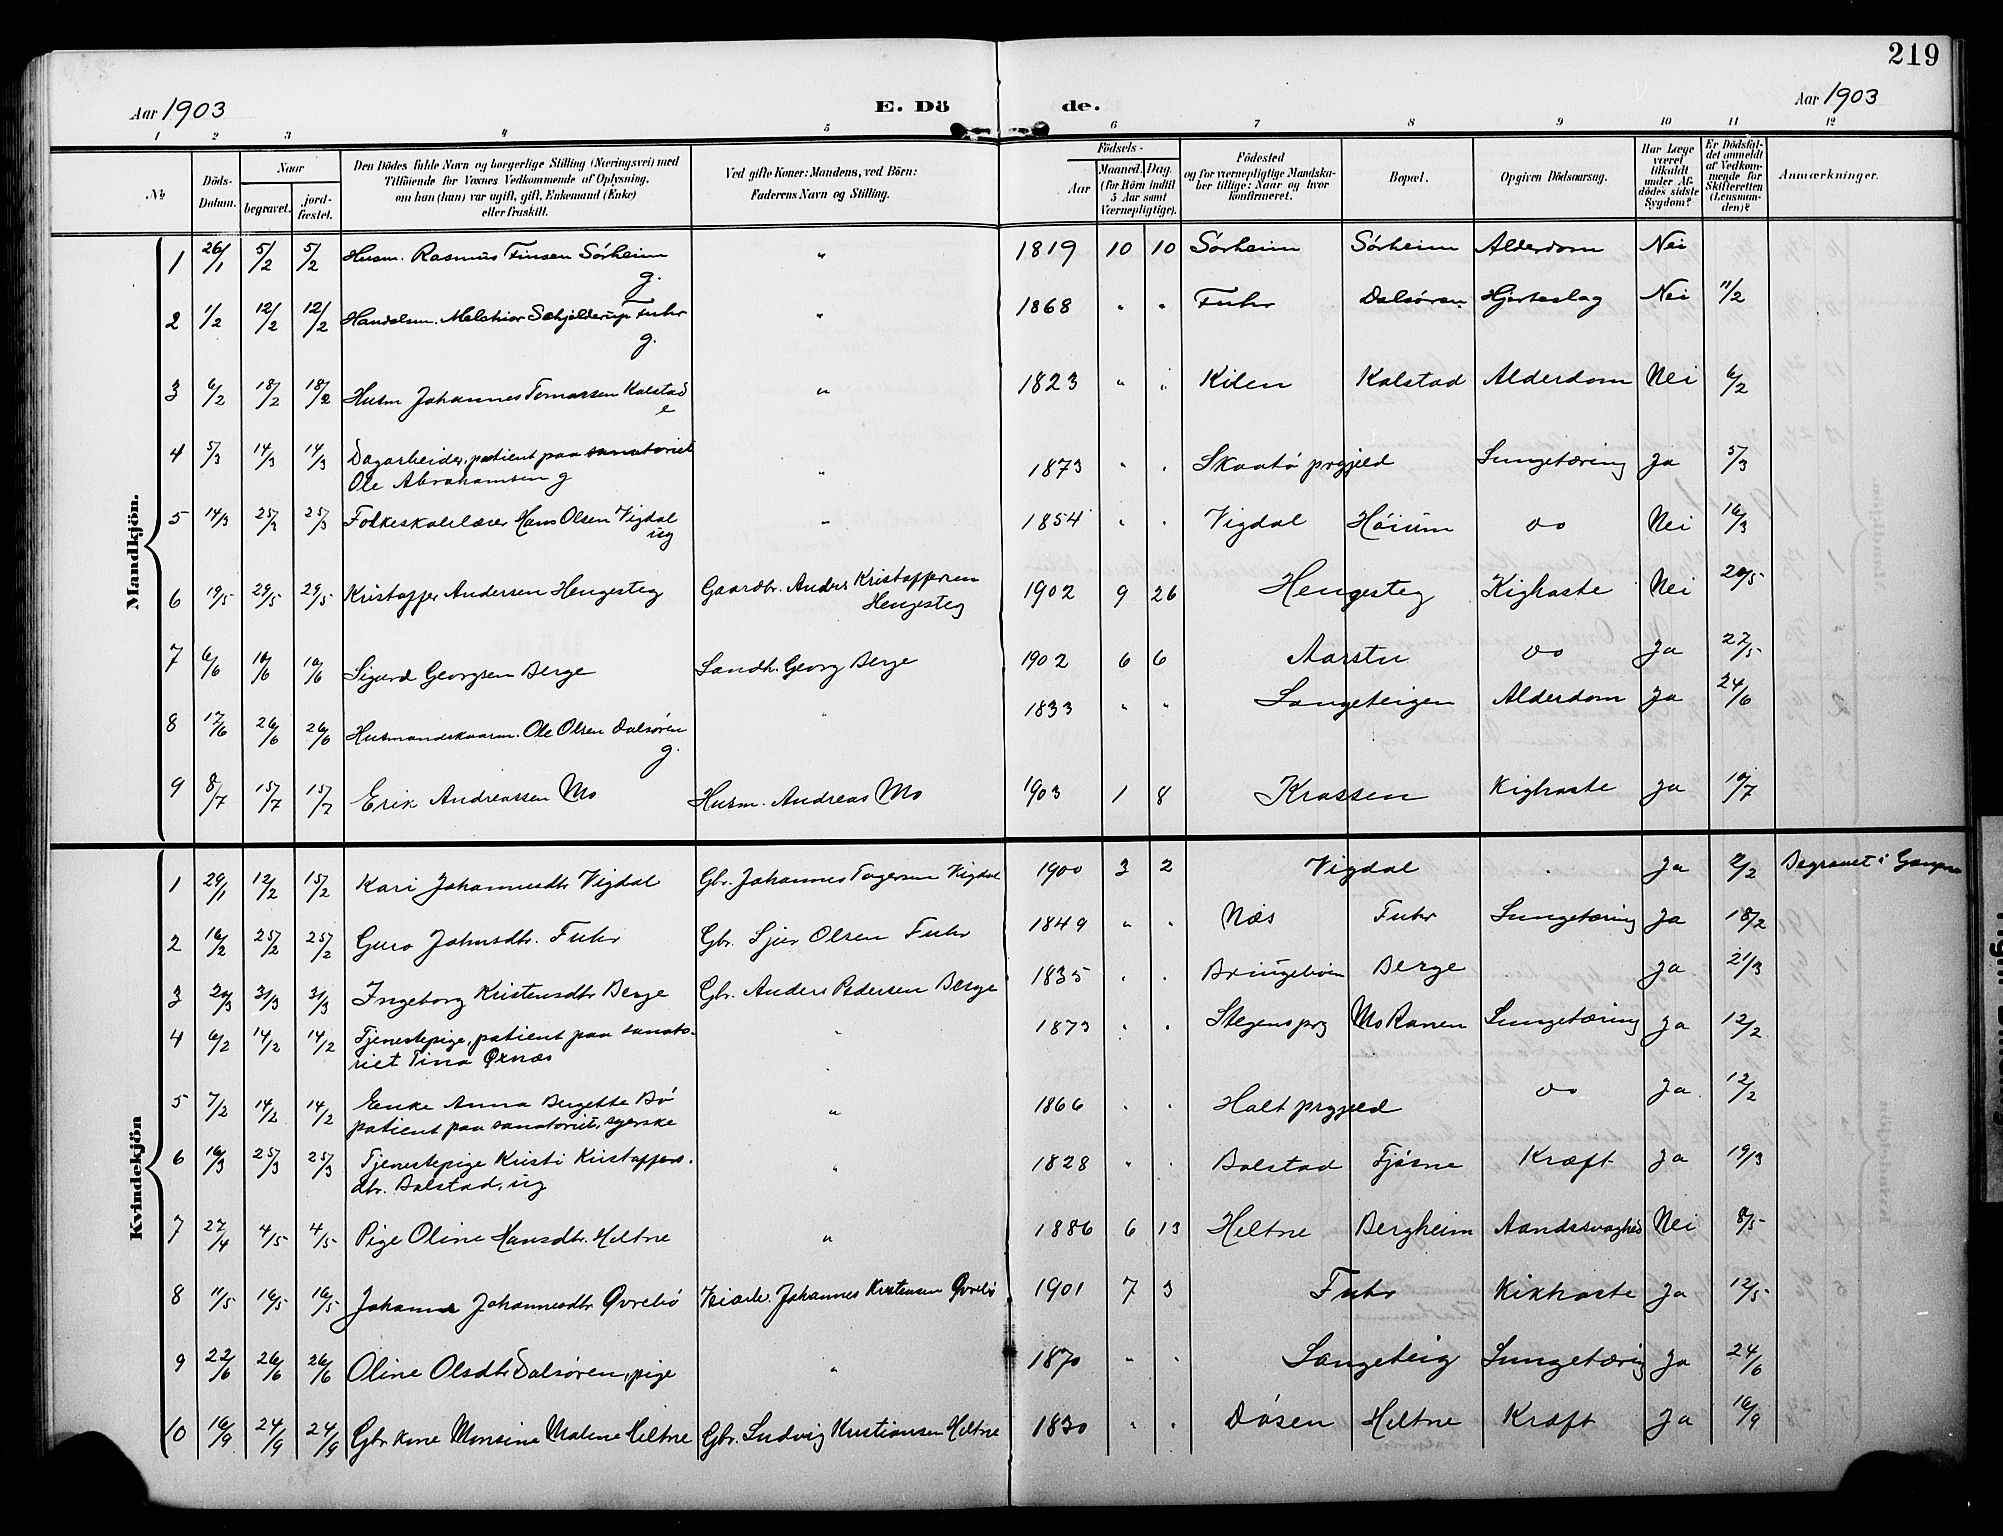 219
Aar 1903 E. Dö de. Aar 1903
1 2 3 4 5 6 7 8 9 10 11 12
№ Döds-Datum. Naar begravet. jord-fæstet. Den Dödes fulde Navn og borgerlige Stilling (Næringsvei) med Tilföiende for Voxnes Vedkommende af Oplysning, om han (hun) var ugift, gift, Enkemand (Enke) eller fraskilt. Ved gifte Koner: Mandens, ved Börn: Faderens Navn og Stilling. Födsels- Aar Maaned. Dag. (for Börn indtil 5 Aar samt Værnepligtige). Födested og for værnepligtige Mandskaber tillige: Naar og hvor konfirmeret. Bopæl. Opgiven Dödsaarsag. Har Læge været tilkaldt under Afdödes sidste Sygdom? Er Dödsfaldet anmeldt af Vedkommende for Skifteretten (Lensmanden)? Anmærkninger.
Mandkjön.
1 26/1 5/2 5/2 Husm. Rasmus Finsen Sørheim g. " 1819 10 10 Sørheim Sørheim Alderdom Nei
2 1/2 12/2 12/2 Handelsm. Melchior Schjelderup Fuhr g. " 1868 " " Fuhr Dalsøren Hjerteslag Nei 11/2
3 6/2 18/2 18/2 Husm Johannes Tomassen Kalstad e " 1823 " " Kilen Kalstad Alderdom Nei 6/2
4 5/3 14/3 14/3 Dagarbeider, patient paa sanatoriet
Ole Abrahamsen g " 1873 " " Skaatø prgjeld Lungetæring Ja 5/3
5 14/3 25/3 25/3 Folkeskolelærer Hans Olsen Vigdal ug " 1854 " " Vigdal Høium do Nei 16/3
6 19/5 29/5 29/5 Kristoffer Andersen Hengesteg Gaardbr. Anders Kristoffersen Hengesteg 1902 9 26 Hengesteg Kighoste Nei 20/5
7 6/6 16/6 16/6 Sigurd Georgsen Berge Landh. Georg Berge 1902 6 6 Aarstu do Ja 27/5
8 17/6 26/6 26/6 Husmandskaarm. Ole Olsen Dalsøren g. " 1833 " " Langeteigen Alderdom Ja 24/6
9 8/7 15/7 15/7 Erik Andreassen Mo Husm. Andreas Mo 1903 1 8 Krossen Kighoste Ja 10/7
Kvindekjön
1 29/1 12/2 15/2 Kari Johannesdtr Vigdal Gbr. Johannes Togersen Vigdal 1900 3 2 Vigdal . Ja 2/2 Begravet i Gaupne
2 16/2 25/2 25/2 Guro Johnsdtr. Fuhr Gbr. Sjur Olsen Fuhr 1849 " " Næs Fuhr Lungetæring Ja 18/2
3 20/3 31/3 31/3 Ingeborg Kristensdtr Berge Gbr. Anders Pedersen Berge 1835 " " Bringebøen Berge Ja 21/3
4 6/2 14/2 14/2 Tjenestepige, patient paa sanato-
riet Tina Øxnæs " 1873 " " Stegens prg Mo Ranen Lungetæring Ja 12/2
5 7/2 14/2 14/2 Enke Anna Bergette Bø
patient paa sanatoriet, syerske " 1866 " " Holt prgjeld do Ja 12/2
6 16/3 25/3 25/3 Tjenestepige Kristi Kristoffers-
dtr. Bolstad, ug " 1828 " " Bolstad Fjøsne Kræft Ja 19/3
7 27/4 4/5 4/5 Pige Oline Hansdtr. Heltne " 1886 6 13 Heltne Bergheim Aandssvaghed Nei 8/5
8 11/5 16/5 16/5 Johanne Johannesdtr Øvrebø Johannes Kristensen Øvrebø 1901 7 3 Fuhr Kikhoste Ja 12/5
9 22/6 26/6 26/6 Oline Olsdtr Dalsøren, pige " 1870 " " Langeteig Lungetæring Ja 24/6
10 16/9 24/9 24/9 Gbr kone Monsine Malene Heltne Gbr. Ludvig Kristiansen Heltne 1830 " " Døsen Heltne Kræft Ja 16/9